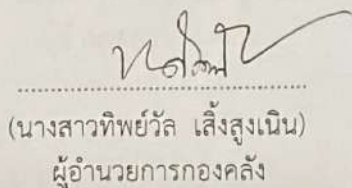 (นางสาวทิพย์วัล เสิ้งสูงเนิน)
ผู้อำนวยการกองคลัง